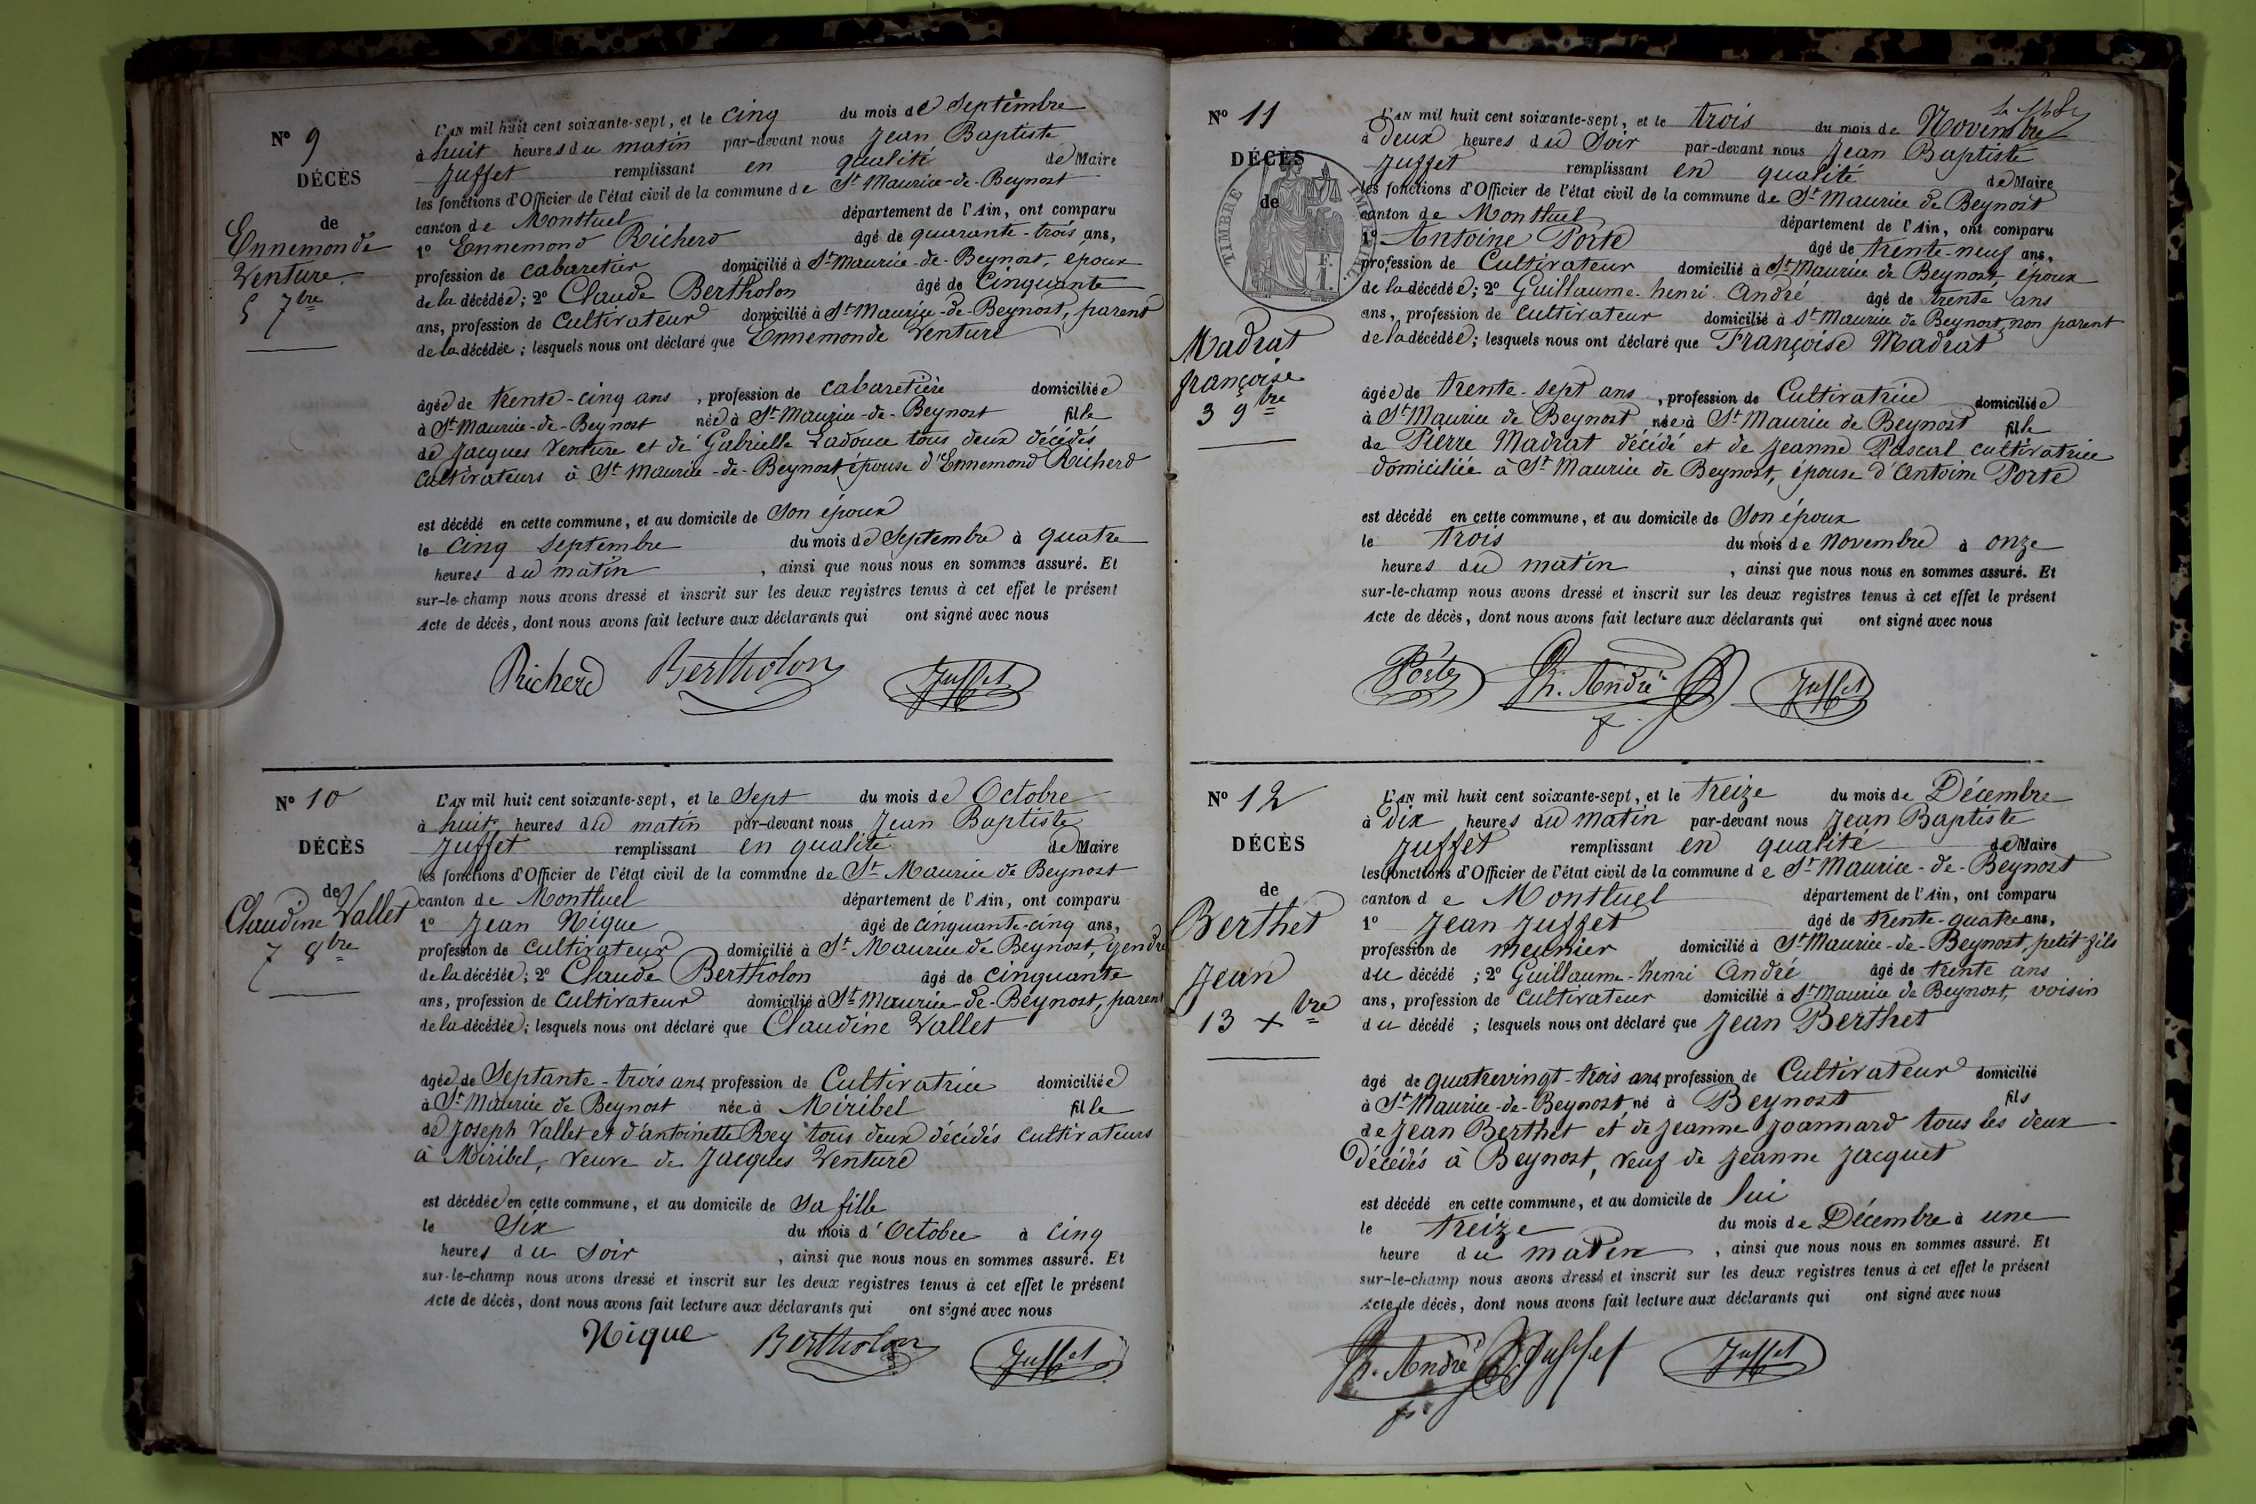 N° 9
DÉCÈS
de
Ennemonde
Venture
5 7bre
L'AN mil huit cent soixante-sept, et le cinq du mois de Septembre
à huit heures du matin par-devant nous Jean Baptiste
Juffet remplissant en qualité de Maire
les fonctions d'Officier de l'état civil de la commune de St Maurice-de-Beynost
canton de Montluel département de l'Ain, ont comparu
1° Ennemond Richerd âgé de quarante-trois ans,
profession de cabaretier domicilié à St Maurice-de-Beynost, époux
de la décédée; 2° Claude Bertholon âgé de Cinquante
ans, profession de cultivateur domicilié à St Maurice-de-Beynost, parent
de la décédée; lesquels nous ont déclaré que Ennemonde Venture
âgée de trente-cinq ans, profession de cabaretière domiciliée
à St Maurice-de-Beynost née à St Maurice-de-Beynost fille
de Jacques Venture et de Gabrielle Ladouce tous deux décédés
cultivateurs à St Maurice-de-Beynost épouse d'Ennemond Richerd
est décédé en cette commune, et au domicile de Son époux
le cinq Septembre du mois de Septembre à quatre
heures du matin, ainsi que nous nous en sommes assuré. Et
sur-le-champ nous avons dressé et inscrit sur les deux registres tenus à cet effet le présent
Acte de décès, dont nous avons fait lecture aux déclarants qui ont signé avec nous
Richerd Bertholon Juffet
N° 10
DÉCÈS
de
Claudine Vallet
7 8bre
L'AN mil huit cent soixante-sept, et le Sept du mois de Octobre
à huit heures du matin par-devant nous Jean Baptiste
Juffet remplissant en qualité de Maire
les fonctions d'Officier de l'état civil de la commune de St Maurice de Beynost
canton de Montluel département de l'Ain, ont comparu
1° Jean Nique âgé de cinquante-cinq ans,
profession de cultivateur domicilié à St Maurice de Beynost, gendre
de la décédée; 2° Claude Bertholon âgé de cinquante
ans, profession de cultivateur domicilié à St Maurice-de-Beynost, parent
de la décédée; lesquels nous ont déclaré que Claudine Vallet
âgée de Septante-trois ans, profession de Cultivatrice domiciliée
à St Maurice de Beynost née à Miribel fille
de Joseph Vallet et d'antoinette Rey tous deux décédés cultivateurs
à Miribel, veuve de Jacques Venture
est décédée en cette commune, et au domicile de Sa fille
le Six du mois d'Octobre à cinq
heures du soir, ainsi que nous nous en sommes assuré. Et
sur-le-champ nous avons dressé et inscrit sur les deux registres tenus à cet effet le présent
Acte de décès, dont nous avons fait lecture aux déclarants qui ont signé avec nous
Nique Bertholon Juffet
N° 11
DÉCÈS
de
TIMBRE IMPÉRIAL
F.
1.
Madrat
françoise
3 9bre
L'AN mil huit cent soixante-sept, et le trois du mois de Novembre
à deux heures du Soir par-devant nous Jean Baptiste
Juffet remplissant en qualité de Maire
les fonctions d'Officier de l'état civil de la commune de St Maurice de Beynost
canton de Montluel département de l'Ain, ont comparu
1° Antoine Porte âgé de trente-neuf ans,
profession de Cultivateur domicilié à St Maurice de Beynost époux
de la décédée; 2° Guillaume-henri André âgé de trente ans
ans, profession de cultivateur domicilié à St Maurice de Beynost, non parent
de la décédée; lesquels nous ont déclaré que Françoise Madrat
âgée de trente-sept ans, profession de Cultivatrice domiciliée
à St Maurice de Beynost née à St Maurice de Beynost fille
de Pierre Madrat décédé et de Jeanne Pascal cultivatrice
domiciliée à St Maurice de Beynost, épouse d'Antoine Porte
est décédé en cette commune, et au domicile de Son époux
le trois du mois de novembre à onze
heures du matin, ainsi que nous nous en sommes assuré. Et
sur-le-champ nous avons dressé et inscrit sur les deux registres tenus à cet effet le présent
Acte de décès, dont nous avons fait lecture aux déclarants qui ont signé avec nous
Porte Gh. André Juffet
N° 12
DÉCÈS
de
Berthet
Jean
13 Xbre
L'AN mil huit cent soixante-sept, et le treize du mois de Décembre
à dix heures du matin par-devant nous Jean Baptiste
Juffet remplissant en qualité de Maire
les fonctions d'Officier de l'état civil de la commune de St Maurice-de-Beynost
canton de Montluel département de l'Ain, ont comparu
1° Jean Juffet âgé de trente-quatre ans,
profession de meunier domicilié à St Maurice-de-Beynost, petit-fils
du décédé; 2° Guillaume-henri André âgé de trente ans
ans, profession de cultivateur domicilié à St Maurice de Beynost, voisin
du décédé; lesquels nous ont déclaré que Jean Berthet
âgé de quatrevingt-trois ans, profession de Cultivateur domicilié
à St Maurice-de-Beynost, né à Beynost fils
de Jean Berthet et de Jeanne Joannard tous les deux
décédés à Beynost, veuf de Jeanne Jacquet
est décédé en cette commune, et au domicile de lui
le treize du mois de Décembre à une
heure du matin, ainsi que nous nous en sommes assuré. Et
sur-le-champ nous avons dressé et inscrit sur les deux registres tenus à cet effet le présent
Acte de décès, dont nous avons fait lecture aux déclarants qui ont signé avec nous
Gh. André J. Juffet Juffet